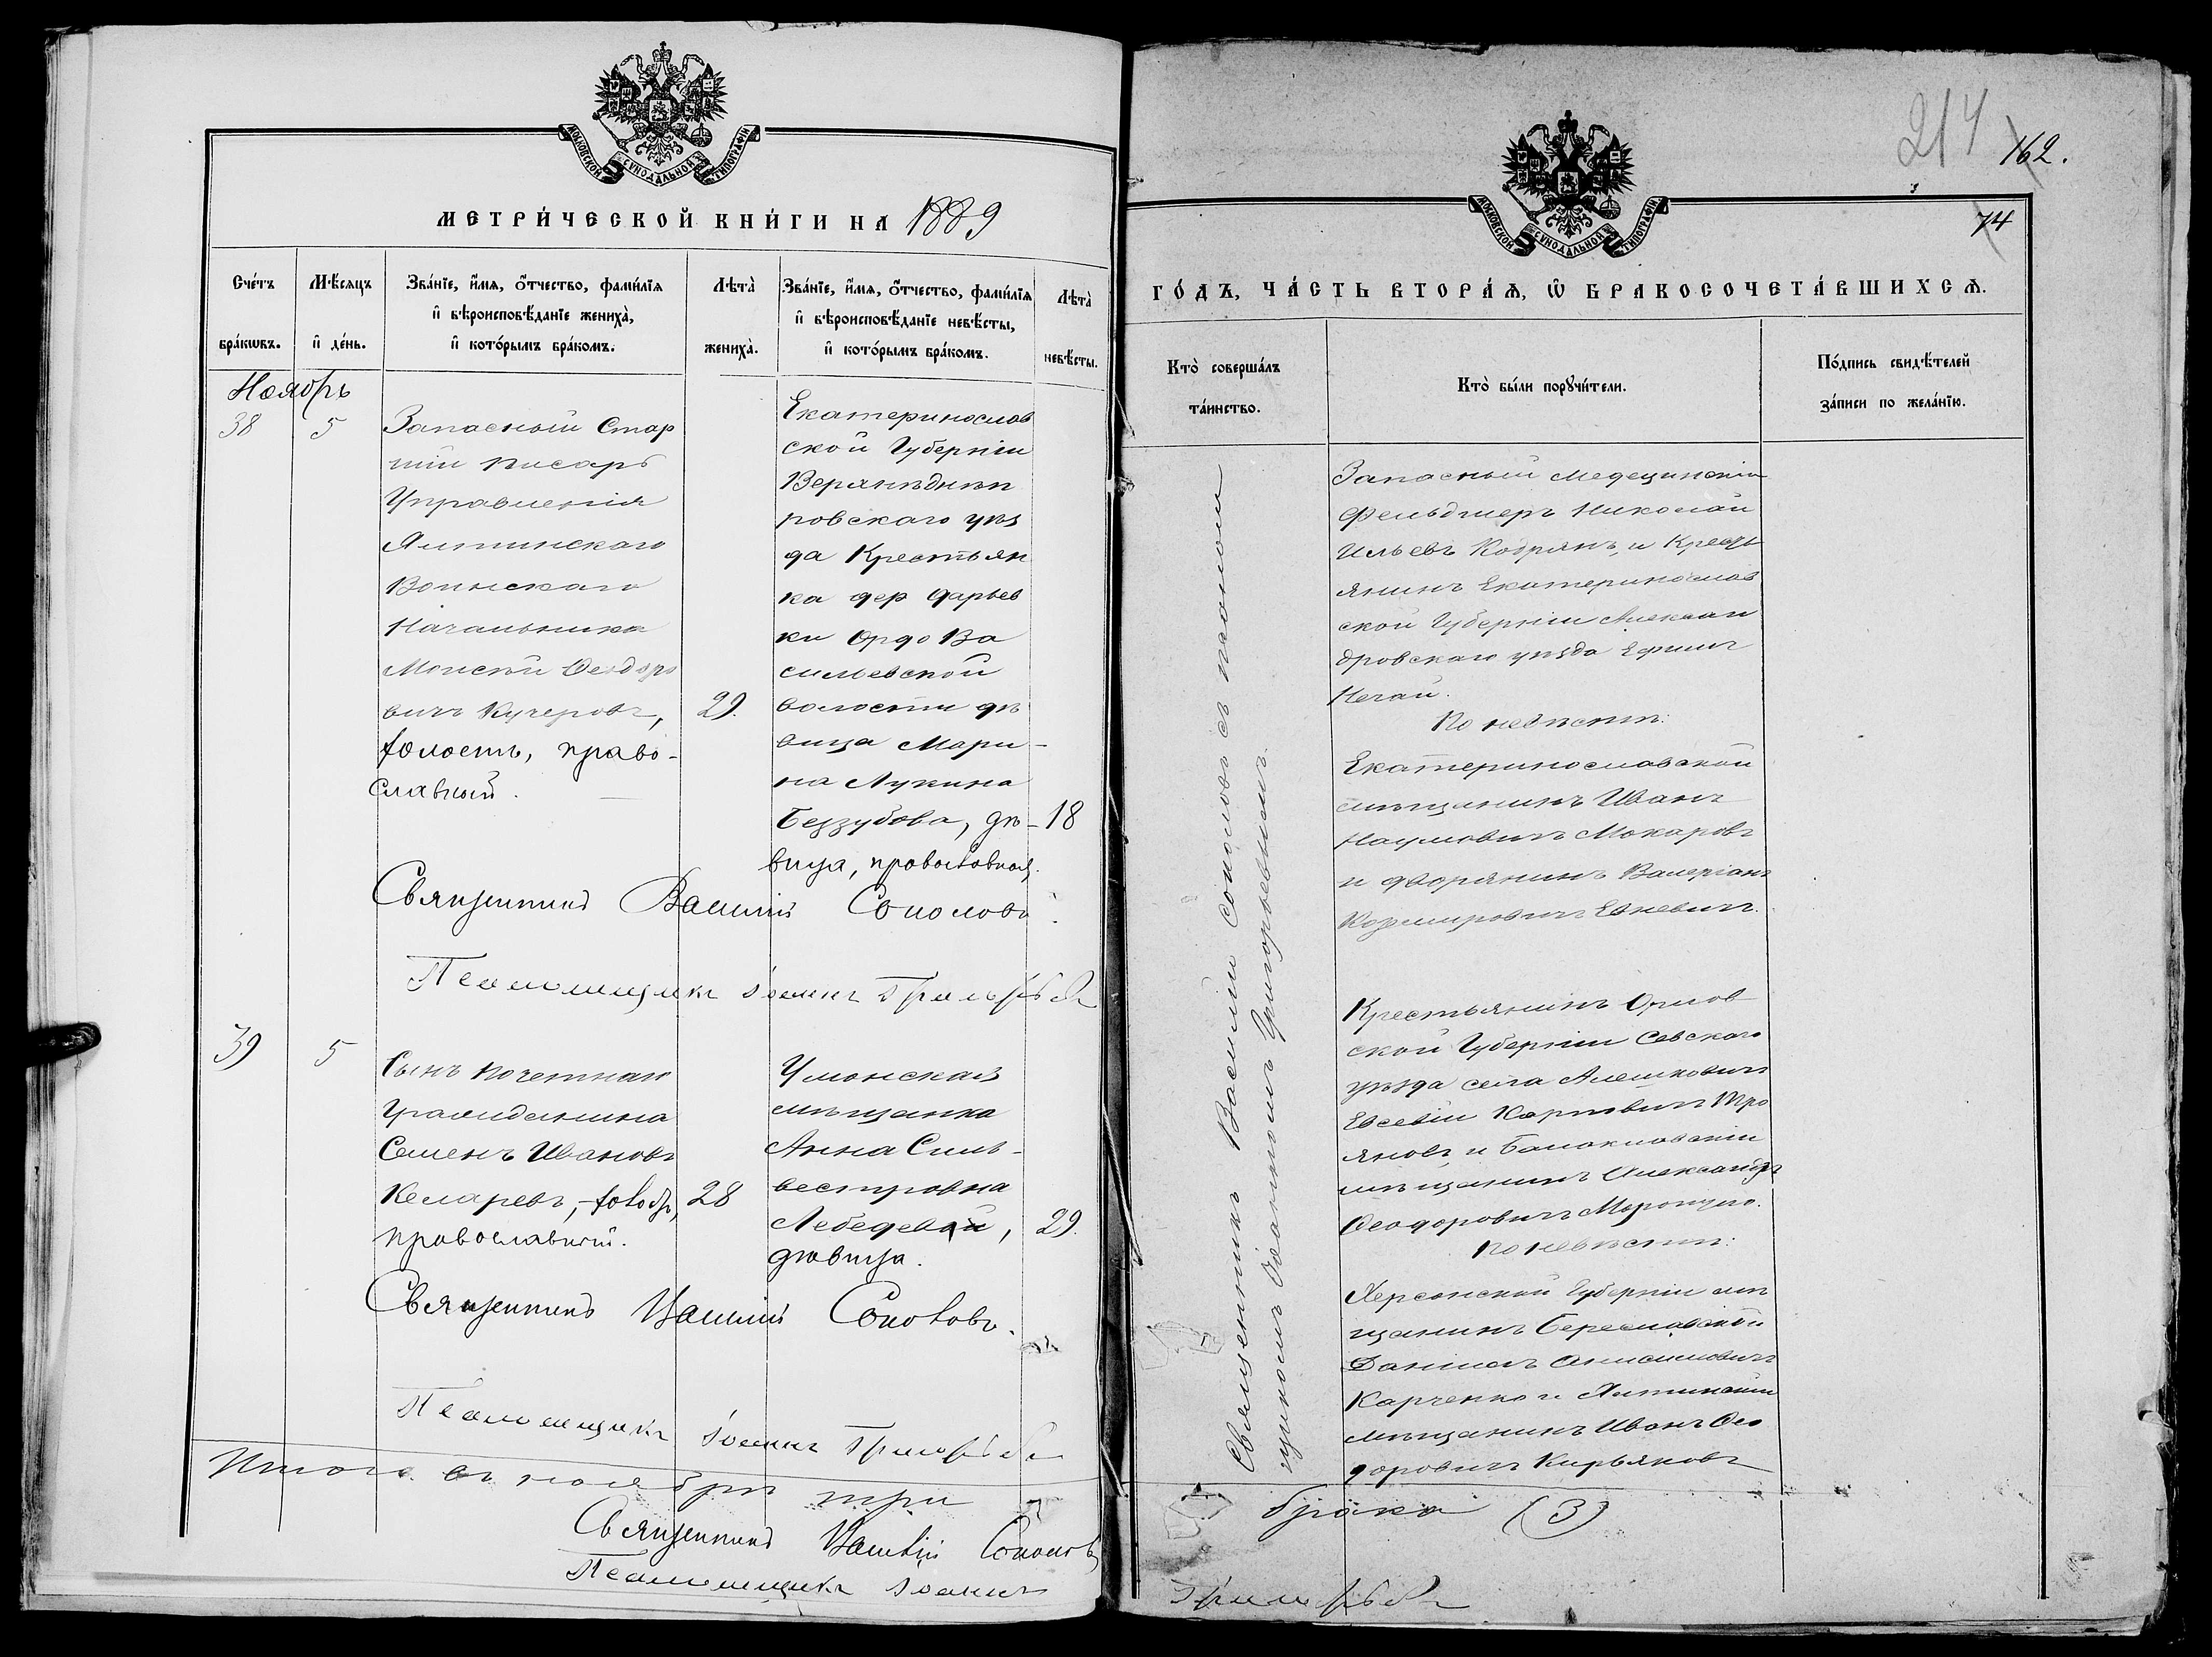 МОСКОВСКОЙ СѴНОДАЛЬНОЙ ТИПОГРАФІИ
МЕТРИ́ЧЕСКОЙ КНИ́ГИ НА 1889
Сче́тъ бра́кѡвъ.
Мѣ́сяцъ и҆ де́нь.
Зва́нїе, и҆́мя, ѻ҆́тчество, фами́лїя
и҆ вѣроисповѣ́данїе жениха̀,
и҆ кото́рымъ бра́комъ.
Лѣта̀ жениха̀.
Зва́нїе, и҆́мя, ѻ҆́тчество, фами́лїя
и҆ вѣроисповѣ́данїе невѣ́сты,
и҆ кото́рымъ бра́комъ.
Лѣта̀ невѣ́сты.
Ноябрь
38
5
Запасный Стар
шій писарь
Управленія
Ялтинскаго
Воинскаго
Начальника
Моисей Ѳеодоро
вичъ Кучеровъ,
холостъ, право-
славный.
29.
Екатеринослав
ской Губерніи
Верхнѣднѣп
ровскаго уѣз
да Крестьян
ка дер Дарьев
ки Ордо Ва
сильевской
волости дѣ
вица Мари-
на Лукина
Беззубова, дѣ-
вица, православная.
18
Священникъ Василій Соколовъ.
Псаломщикъ Іоаннъ Григорьевъ
39
5
Сынъ почетнаго
гражданина
Семенъ Ивановъ
Келаревъ, холостъ,
православный.
28
Уманская
мѣщанка
Анна Силь-
вестровна
Лебедева,
дѣвица.
29.
Священникъ Василій Соколовъ.
Псаломщикъ Іоаннъ Григорьевъ
Итого въ ноябрѣ три
Священникъ Василій Соколовъ
Псаломщикъ Іоаннъ
214
162.
74
МОСКОВСКОЙ СѴНОДАЛЬНОЙ ТИПОГРАФІИ
ГО́ДЪ, ЧА́СТЬ ВТОРА́Я, Ѡ҆ БРАКОСОЧЕТА́ВШИХСЯ.
Кто̀ соверша́лъ
та́инство.
Кто̀ бы́ли порꙋчи́тели.
По́дпись свидѣ́телей
за́писи по жела́нїю.
Священникъ Василій Соколовъ съ псалом
щикомъ Іоанномъ Григорьевымъ.
Запасный медецинскій
Фельдшеръ Николай
Ильевъ Кодрянъ, и Кресть
янинъ Екатеринослав
ской Губерніи Алексан
дровскаго уѣзда Ефимъ
Нечай.
По невѣстѣ:
Екатеринославской
мѣщанинъ Иванъ
Наумовичъ Макаровъ
и дворянинъ Валеріанъ
Казимировичъ
Крестьянинъ Орлов
ской Губерніи Севскаго
уѣзда села Алешковичъ
Евсевій Карповичъ Тро
яновъ, и Балаклавскій
мѣщанинъ Александръ
Ѳеодоровичъ
По невѣстѣ:
Херсонской Губерніи мѣ
щанинъ Бериславской
Даніилъ Анисимовичъ
Карченко и Ялтинскій
мѣщанинъ Иванъ Ѳео
доровичъ Кирьяковъ
брака (3)
Григорьевъ